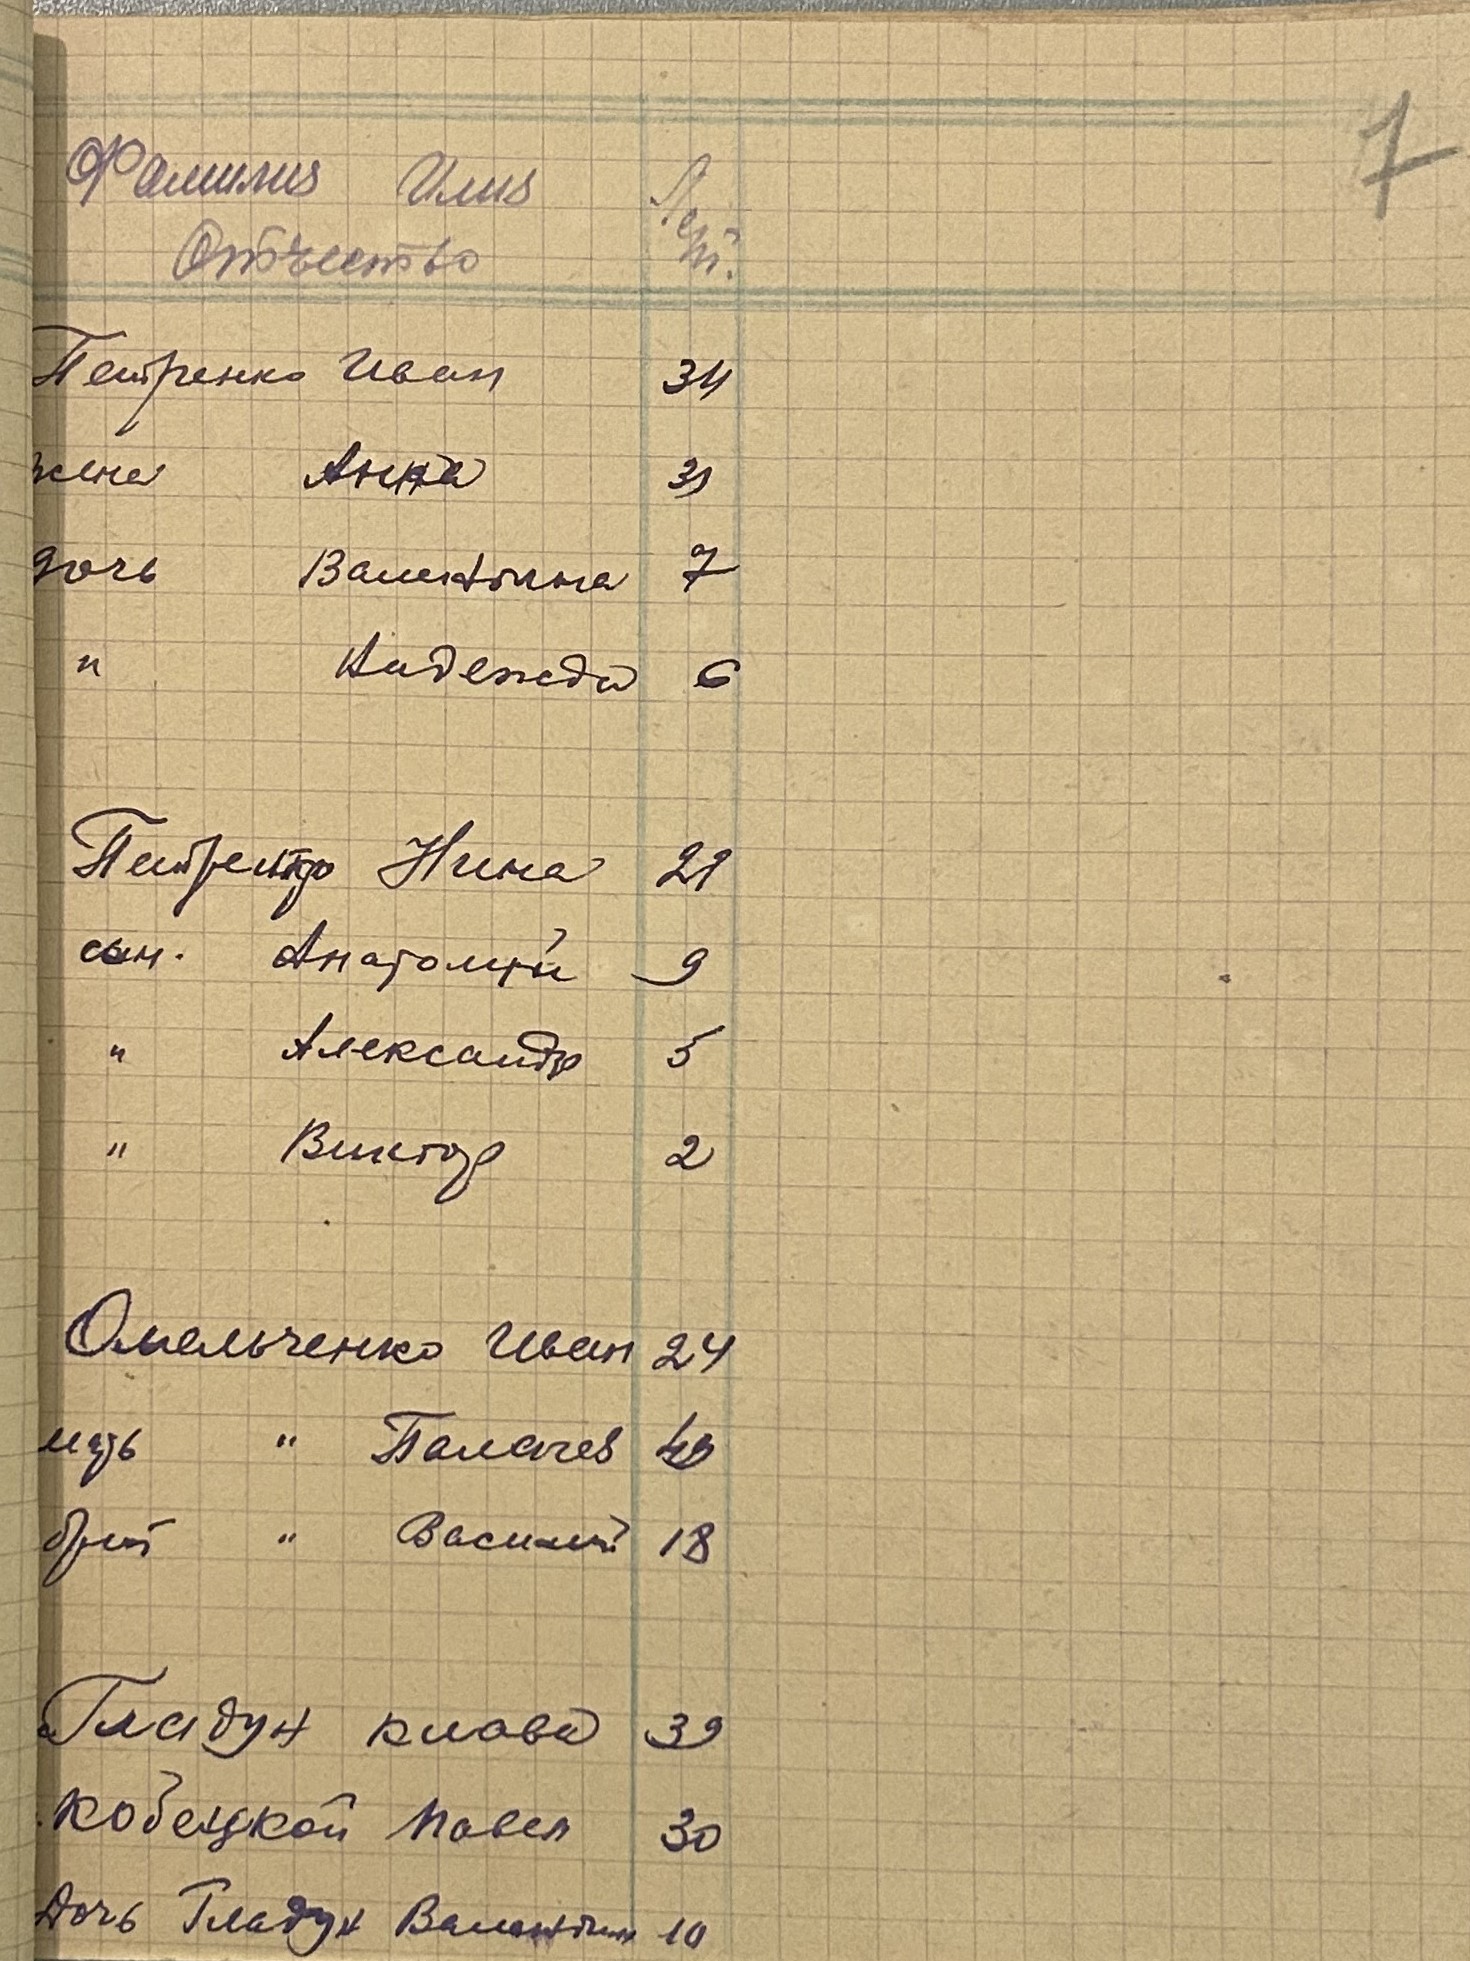 7
Фамилия Имя Лет.
Отчество
Петренко Иван 34
жена Анна 31
дочь Валентина 7
" Надежда 6
Нина 29
сын. Анатолий 9
" Александр 5
" Виктор 2
Омельченко Иван 24
мать "
брат " Василий 18
Гладун клава 39
Кобецкой Павел 30
Дочь Гладун Валентин 10